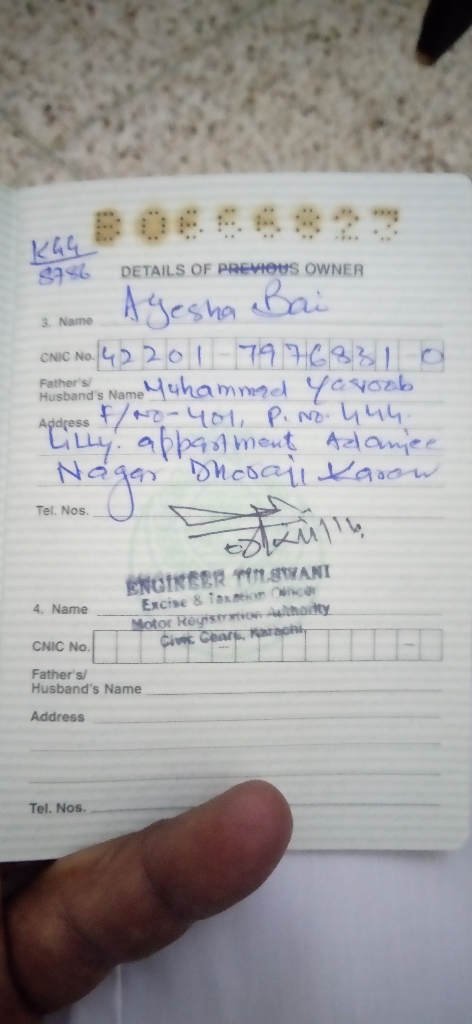 B0666823
K44
8786
DETAILS OF PREVIOUS OWNER
3. Name Ayesha Bai
CNIC No. 42201-7976831 0
Father's/
Husband's Name Muhammad Yaqoob
Address F/No-401, P.No. 444.
Lilly. appartment Adamjee
Nagar Dhoraji
Tel. Nos.
ENGINEER TULSWANI
Excise & Taxation Officer
4. Name
Motor Registration Authority
CNIC No.
Civic Centre, Karachi.
Father's/
Husband's Name
Address
Tel. Nos.